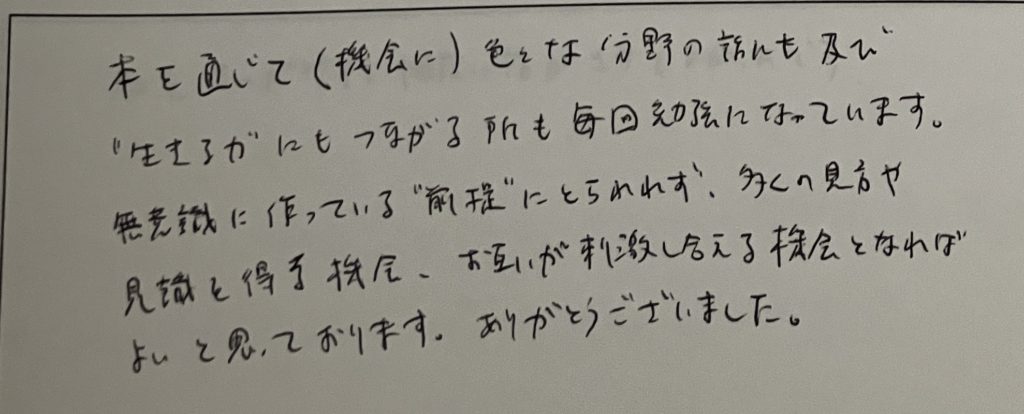 本を通じて(機会に)色々な分野の話にも及び
"生きる力"にもつながる所も毎回勉強になっています。
無意識に作っている"前提"にとらわれず、多くの見方や
見識を得る機会、お互いが刺激し合える機会となれば
よいと思っております。ありがとうございました。